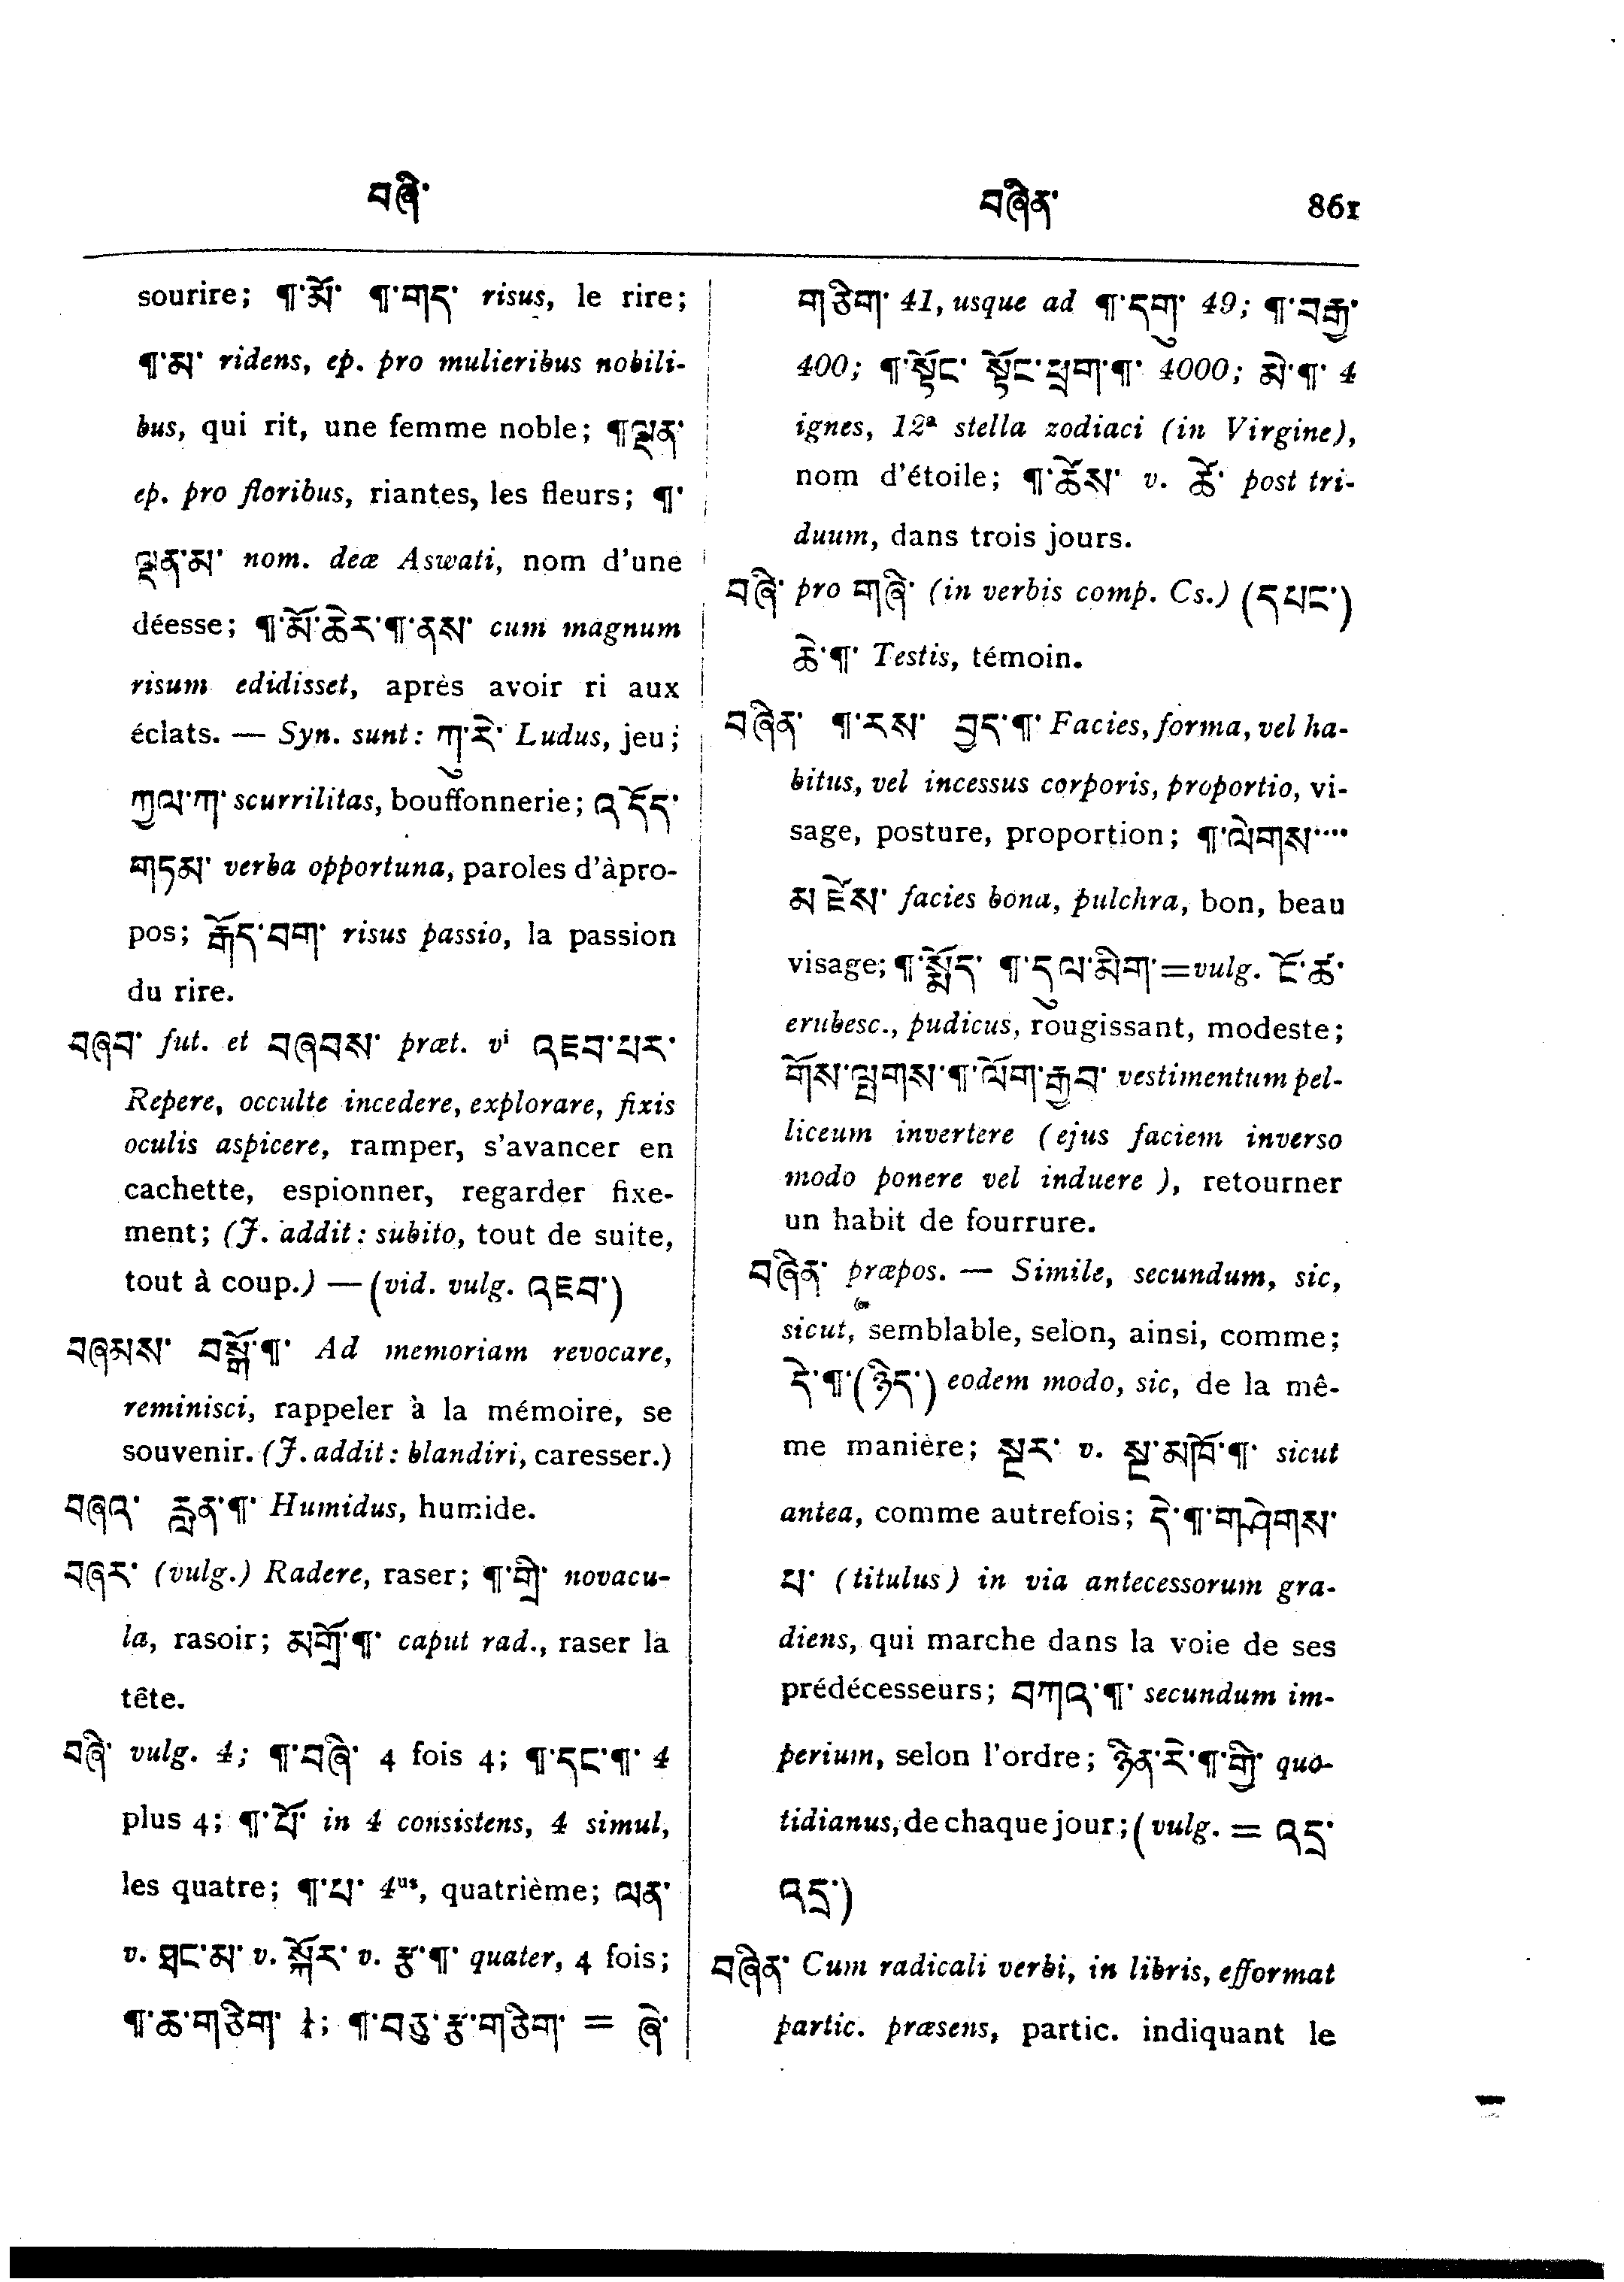 བཞི་
བཞིན་ 861
sourire; ¶་མོ་ ¶་གད་ risus, le rire;
¶་མ་ ridens, ep. pro mulieribus nobili-
bus, qui rit, une femme noble; ¶ལྡན་
ep. pro floribus, riantes, les fleurs; ¶་
ལྡན་མ་ nom. deæ Aswati, nom d'une
déesse; ¶་མོ་ཆེར་¶་ནས་ cum magnum
risum edidisset, après avoir ri aux
éclats. — Syn. sunt: ཀུ་རེ་ Ludus, jeu;
ཀྱལ་ཀ་ scurrilitas, bouffonnerie; འདོད་
གཏམ་ verba opportuna, paroles d'àpro-
pos; རྒོད་བག་ risus passio, la passion
du rire.
བཞབ་ fut. et བཞབས་ præt. vⁱ འཇབ་པར་
Repere, occulte incedere, explorare, fixis
oculis aspicere, ramper, s'avancer en
cachette, espionner, regarder fixe-
ment; (J. addit: subito, tout de suite,
tout à coup.) — (vid. vulg. འཇབ་)
བཞམས་ བསྒོ་¶་ Ad memoriam revocare,
reminisci, rappeler à la mémoire, se
souvenir. (J. addit: blandiri, caresser.)
བཞའ་ རླན་¶་ Humidus, humide.
བཞར་ (vulg.) Radere, raser; ¶་གྲི་ novacu-
la, rasoir; མགྲོ་¶་ caput rad., raser la
tête.
བཞི་ vulg. 4; ¶་བཞི་ 4 fois 4; ¶་དང་¶་ 4
plus 4; ¶་པོ་ in 4 consistens, 4 simul,
les quatre; ¶་པ་ 4ᵘˢ, quatrième; ལན་
v. ཐང་མ་ v. སྐོར་ v. རྩ་¶་ quater, 4 fois;
¶་ཆ་གཅིག་ ¼; ¶་བཅུ་རྩ་གཅིག་ = ཞེ་
གཅིག་ 41, usque ad ¶་དགུ་ 49; ¶་བརྒྱ་
400; ¶་སྟོང་ སྟོང་ཕྲག་¶་ 4000; མེ་¶་ 4
ignes, 12ª stella zodiaci (in Virgine),
nom d'étoile; ¶་ཚེས་ v. ཚེ་ post tri-
duum, dans trois jours.
བཞི་ pro གཞི་ (in verbis comp. Cs.) (དཔང་)
ཆེ་¶་ Testis, témoin.
བཞིན་ ¶་རས་ བྱད་¶་ Facies, forma, vel ha-
bitus, vel incessus corporis, proportio, vi-
sage, posture, proportion; ¶་ལེགས་····
མཛེས་ facies bona, pulchra, bon, beau
visage; ¶་སྨོད་ ¶་དུལ་མིག་=vulg. ངོ་ཚ་
erubesc., pudicus, rougissant, modeste;
གོས་ལྤགས་¶་ལོག་རྒྱབ་ vestimentum pel-
liceum invertere (ejus faciem inverso
modo ponere vel induere), retourner
un habit de fourrure.
བཞིན་ præpos. — Simile, secundum, sic,
sicut, semblable, selon, ainsi, comme;
དེ་¶་(ཉིད་) eodem modo, sic, de la mê-
me manière; སྔར་ v. སྔ་མཁོ་¶་ sicut
antea, comme autrefois; དེ་¶་གཤེགས་
པ་ (titulus) in via antecessorum gra-
diens, qui marche dans la voie de ses
prédécesseurs; བཀའ་¶་ secundum im-
perium, selon l'ordre; ཉིན་རེ་¶་གྱི་ quo-
tidianus, de chaque jour; (vulg. = འདྲ་
འདྲ་)
བཞིན་ Cum radicali verbi, in libris, efformat
partic. præsens, partic. indiquant le